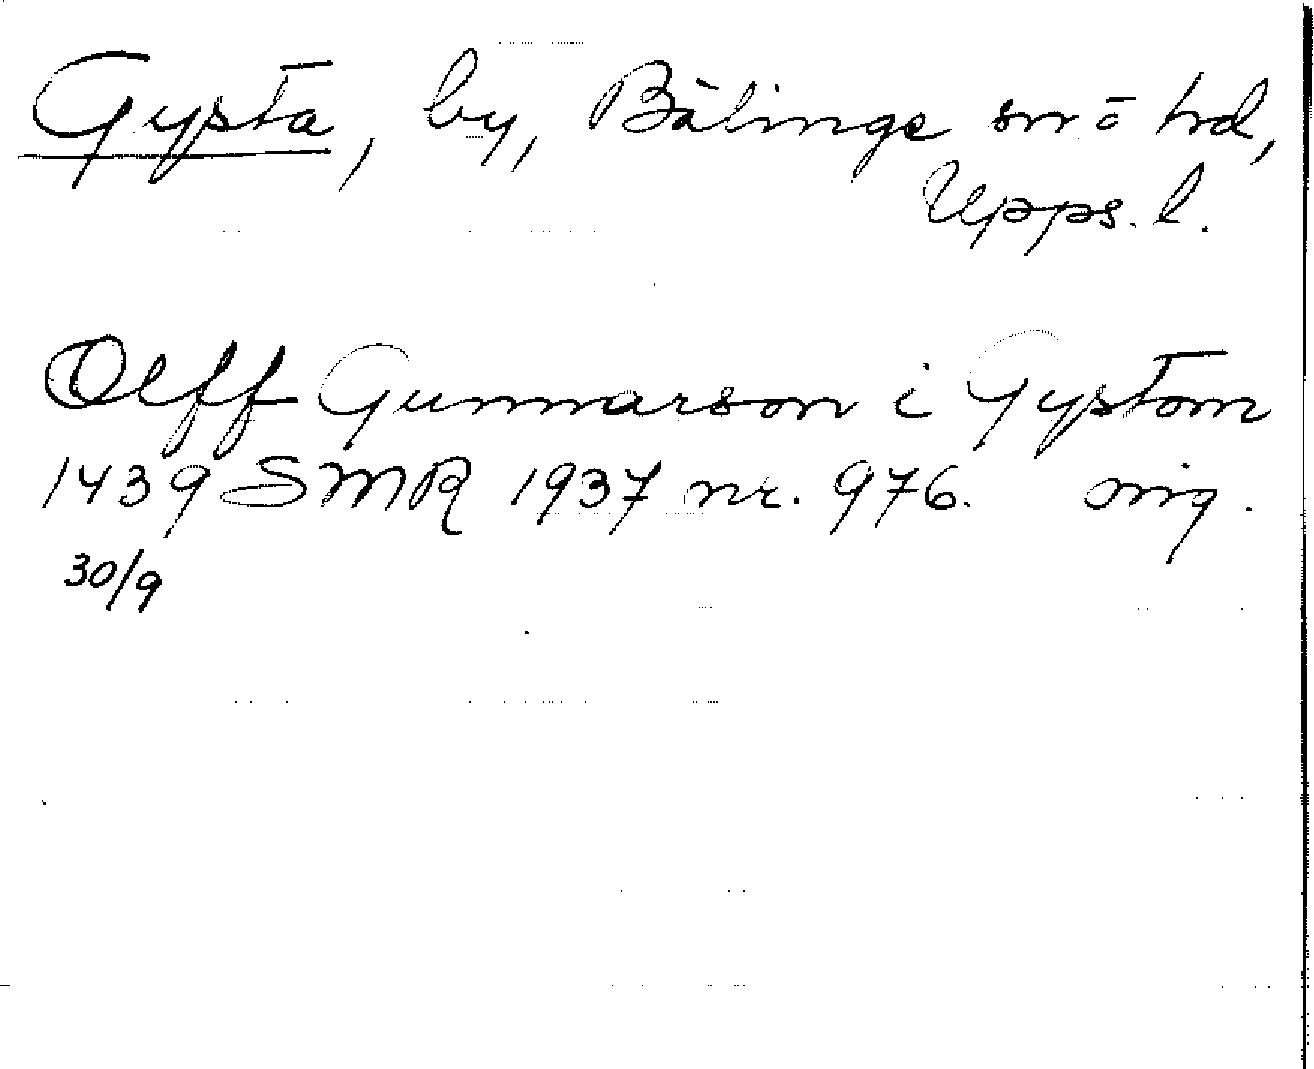 Gysta, by, Bälinge sn o hd,
Upps. l.
Oleff Gunnarson i Gystom
1439 SMR 1937 nr. 976. orig.
30/9